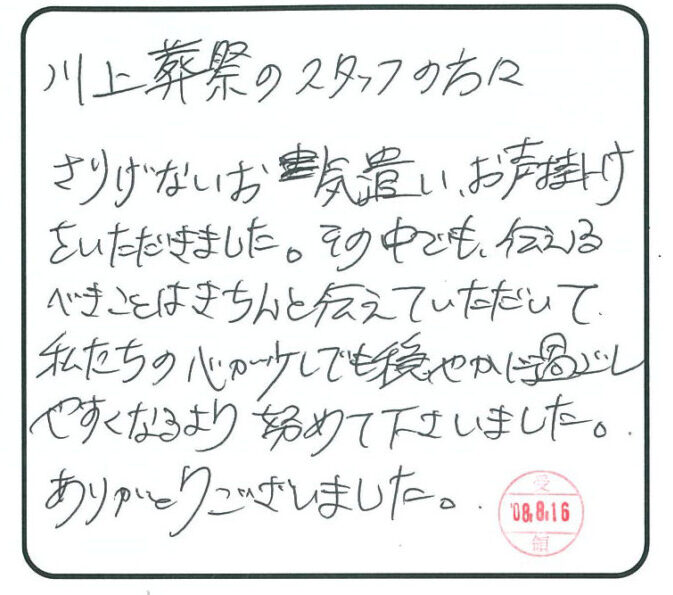 川上葬祭のスタッフの方々
さりげないお気遣い、お声掛け
をいただきました。その中でも、伝える
べきことはきちんと伝えていただいて
私たちの心が少しでも穏やかに過ごし
やすくなるよう努めて下さいました。
ありがとうございました。
受
'08.8.16
領